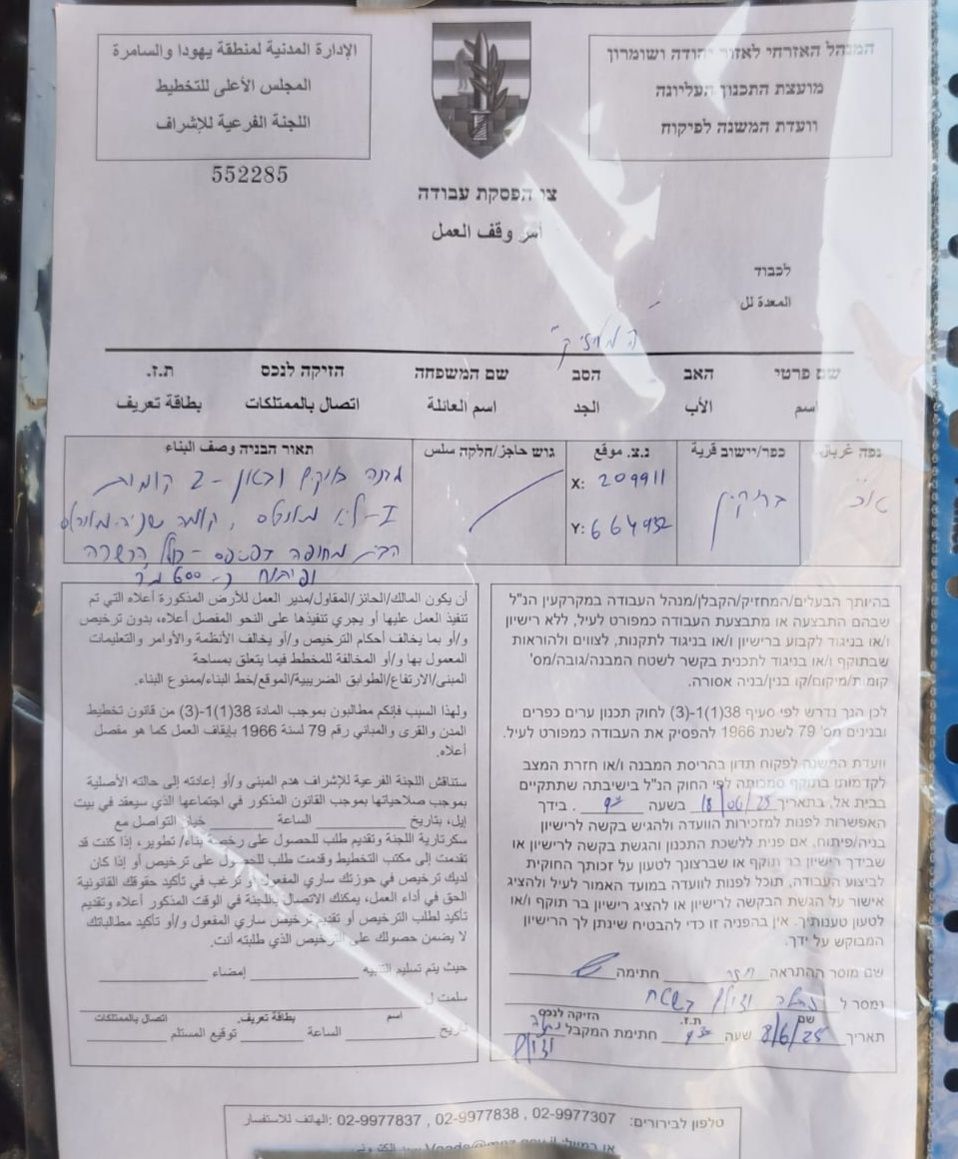 המנהל האזרחי לאזור יהודה ושומרון
מועצת התכנון העליונה
וועדת המשנה לפיקוח
الإدارة المدنية لمنطقة يهودا والسامرة
المجلس الأعلى للتخطيط
اللجنة الفرعية للإشراف
552285
צו הפסקת עבודה
أمر وقف العمل
לכבוד
المعدة لل
"המחזיק"
שם פרטי האב הסב שם המשפחה הזיקה לנכס ת.ז.
اسم الأب الجد اسم العائلة اتصال بالممتلكات بطاقة تعريف
נפה غربال כפר/יישוב قرية נ.צ. موقع גוש حاجز/חלקה سلس תאור הבניה وصف البناء
ברוקין
X: 209911
Y: 664932
2 קומות
קומה שניה
בהיותך הבעלים/המחזיק/הקבלן/מנהל העבודה במקרקעין הנ"ל
שבהם התבצעה או מתבצעת העבודה כמפורט לעיל, ללא רישיון
ו/או בניגוד לקבוע ברישיון ו/או בניגוד לתקנות, לצווים ולהוראות
שבתוקף ו/או בניגוד לתכנית בקשר לשטח המבנה/גובה/מס'
קומות/מיקום/קו בנין/בניה אסורה.
לכן הנך נדרש לפי סעיף 38(1)1-(3) לחוק תכנון ערים כפרים
ובנינים מס' 79 לשנת 1966 להפסיק את העבודה כמפורט לעיל.
וועדת המשנה לפקוח תדון בהריסת המבנה ו/או חזרת המצב
לקדמותו בתוקף סמכותה לפי החוק הנ"ל בישיבתה שתתקיים
בבית אל, בתאריך 18/06/25 בשעה . בידך
האפשרות לפנות למזכירות הוועדה ולהגיש בקשה לרישיון
בניה/פיתוח, אם פנית ללשכת התכנון והגשת בקשה לרישיון או
שבידך רישיון בר תוקף או שברצונך לטעון על זכותך החוקית
לביצוע העבודה, תוכל לפנות לוועדה במועד האמור לעיל ולהציג
אישור על הגשת הבקשה לרישיון או להציג רישיון בר תוקף ו/או
לטעון טענותיך. אין בהפניה זו כדי להבטיח שינתן לך הרישיון
המבוקש על ידך.
שם מוסר ההתראה חתימה
נמסר ל
שם ת.ז. הזיקה לנכס
תאריך 8/6/25 שעה חתימת המקבל
أن يكون المالك/الحائز/المقاول/مدير العمل للأرض المذكورة أعلاه التي تم
تنفيذ العمل عليها أو يجري تنفيذها على النحو المفصل أعلاه، بدون ترخيص
و/أو بما يخالف أحكام الترخيص و/أو يخالف الأنظمة والأوامر والتعليمات
المعمول بها و/أو المخالفة للمخطط فيما يتعلق بمساحة
المبنى/الارتفاع/الطوابق الضريبية/الموقع/خط البناء/ممنوع البناء.
ولهذا السبب فإنكم مطالبون بموجب المادة 38(1)1-(3) من قانون تخطيط
المدن والقرى والمباني رقم 79 لسنة 1966 بإيقاف العمل كما هو مفصل
أعلاه.
ستناقش اللجنة الفرعية للإشراف هدم المبنى و/أو إعادته إلى حالته الأصلية
بموجب صلاحياتها بموجب القانون المذكور في اجتماعها الذي سيعقد في بيت
إيل، بتاريخ الساعة خيار التواصل مع
سكرتارية اللجنة وتقديم طلب للحصول على رخصة بناء/ تطوير، إذا كنت قد
تقدمت إلى مكتب التخطيط وقدمت طلب للحصول على ترخيص أو إذا كان
لديك ترخيص في حوزتك ساري المفعول أو ترغب في تأكيد حقوقك القانونية
الحق في أداء العمل، يمكنك الاتصال باللجنة في الوقت المذكور أعلاه وتقديم
تأكيد لطلب الترخيص أو تقديم ترخيص ساري المفعول و/أو تأكيد مطالباتك.
لا يضمن حصولك على الترخيص الذي طلبته أنت.
حيث يتم تسليم التنبيه إمضاء
سلمت ل
اسم بطاقة تعريف. اتصال بالممتلكات
تاريخ الساعة توقيع المستلم
טלפון לבירורים: 02-9977307 , 02-9977838 , 02-9977837 :الهاتف للاستفسار